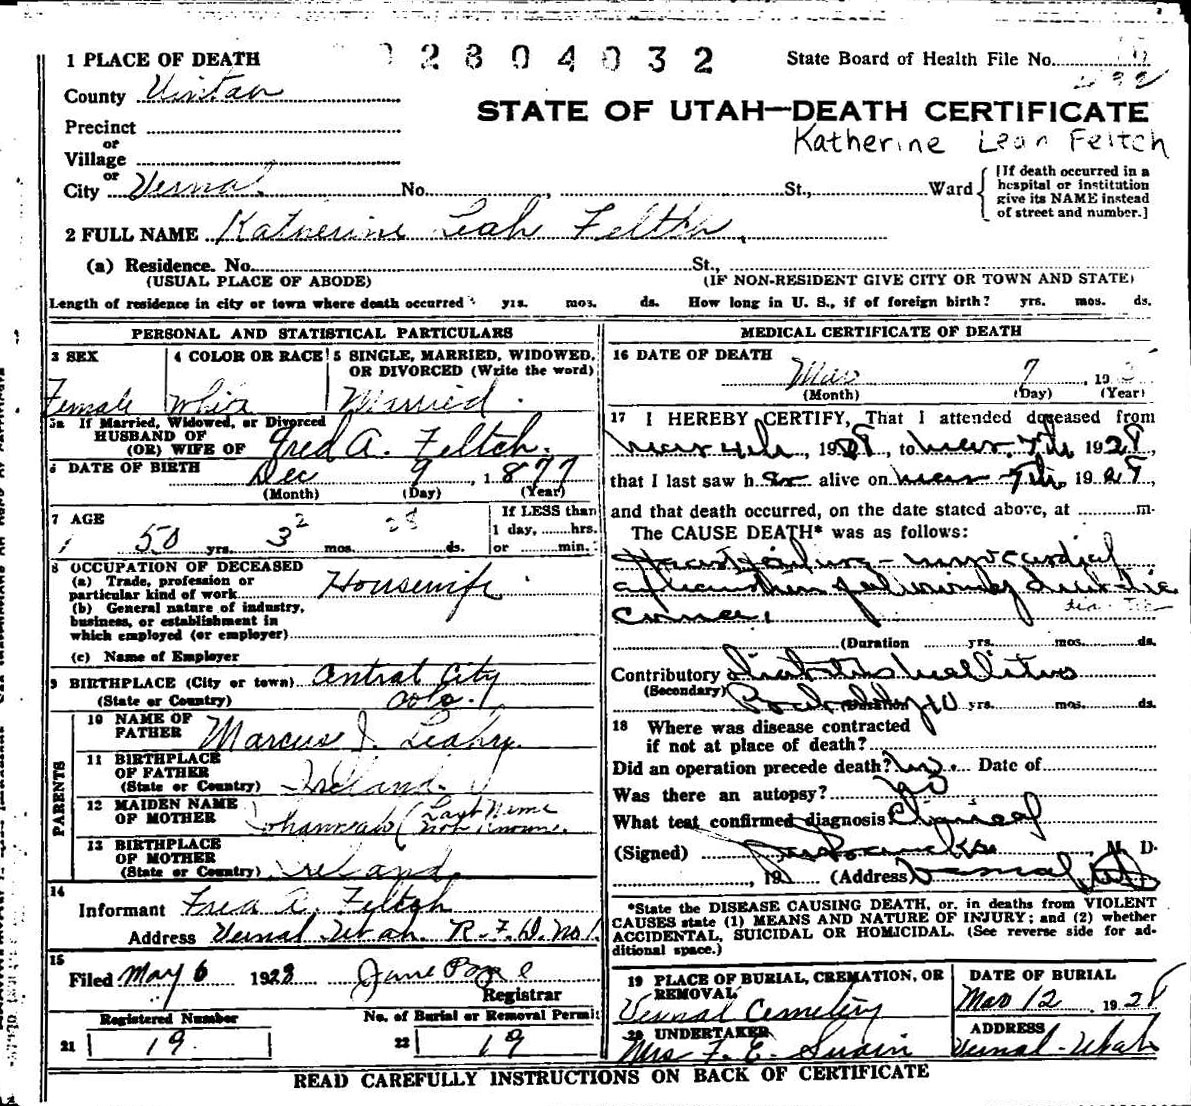 1 PLACE OF DEATH
2804032
State Board of Health File No.
County Uintah
STATE OF UTAH—DEATH CERTIFICATE
Precinct
Katherine Leah Feltch
or
Village
or
City Vernal. No. , St., Ward
[If death occurred in a
hospital or institution
give its NAME instead
of street and number.]
2 FULL NAME Katherine Leah Feltch
(a) Residence. No. St.,
(USUAL PLACE OF ABODE) (IF NON-RESIDENT GIVE CITY OR TOWN AND STATE)
Length of residence in city or town where death occurred yrs. mos. ds. How long in U. S., if of foreign birth? yrs. mos. ds.
PERSONAL AND STATISTICAL PARTICULARS
3 SEX
Female
4 COLOR OR RACE
White
5 SINGLE, MARRIED, WIDOWED,
OR DIVORCED (Write the word)
Married.
5a If Married, Widowed, or Divorced
HUSBAND OF
(OR) WIFE OF Fred A. Feltch.
6 DATE OF BIRTH Dec 9, 1877
(Month) (Day) (Year)
7 AGE
50 yrs. 3 2 mos. 28 ds.
If LESS than
1 day, hrs.
or min.
8 OCCUPATION OF DECEASED
(a) Trade, profession or
particular kind of work Housewife
(b) General nature of industry,
business, or establishment in
which employed (or employer)
(c) Name of Employer
9 BIRTHPLACE (City or town) Central City
(State or Country) Colo.
PARENTS
10 NAME OF
FATHER Marcus J. Leahy.
11 BIRTHPLACE
OF FATHER
(State or Country) Ireland.
12 MAIDEN NAME
OF MOTHER Johannah (Last Name
not Known.
13 BIRTHPLACE
OF MOTHER
(State or Country) Ireland
14
Informant Fred A. Feltch
Address Vernal Utah. R.F.D. No 1.
15
Filed May 6 1928 Jane Pope
Registrar
Registered Number
21 19
No. of Burial or Removal Permit
22 19
MEDICAL CERTIFICATE OF DEATH
16 DATE OF DEATH
Mar 7, 192
(Month) (Day) (Year)
17 I HEREBY CERTIFY, That I attended deceased from
Mar 4th, 1928, to Mar, 7th, 1928,
that I last saw her alive on Mar 7th, 1928,
and that death occurred, on the date stated above, at m.
The CAUSE DEATH* was as follows:
Heart failure - myocardial
following diabetic
coma.
(Duration yrs. mos. ds.
Contributory Diabetes Mellitus
(Secondary) Probably 10 yrs. mos. ds.
18 Where was disease contracted
if not at place of death?
Did an operation precede death? no. Date of
Was there an autopsy? no
What test confirmed diagnosis Clinical
(Signed) , M. D.
, 19 (Address) Vernal Utah
*State the DISEASE CAUSING DEATH, or, in deaths from VIOLENT
CAUSES state (1) MEANS AND NATURE OF INJURY; and (2) whether
ACCIDENTAL, SUICIDAL OR HOMICIDAL. (See reverse side for ad-
ditional space.)
19 PLACE OF BURIAL, CREMATION, OR
REMOVAL
Vernal Cemetery
DATE OF BURIAL
Mar 12 1928
20 UNDERTAKER
Mrs F. E. Swain
ADDRESS
Vernal-Utah
READ CAREFULLY INSTRUCTIONS ON BACK OF CERTIFICATE